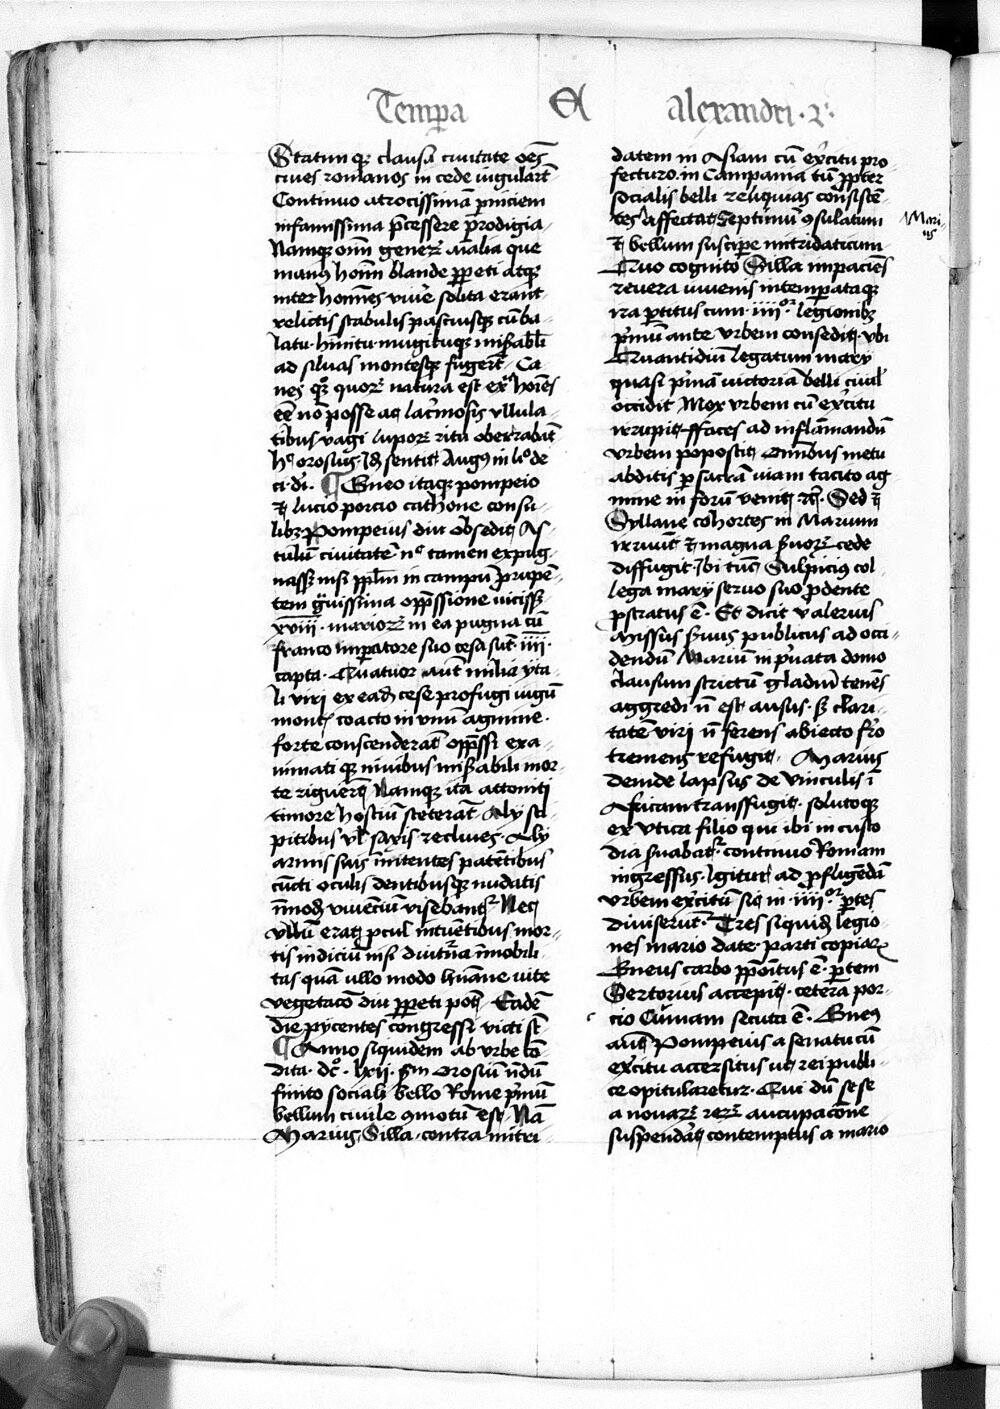 Tempa Et Alexandri · r ·
Statim qꝫ clausa ciuitate oēs
ciues romanos in cede iugularūt
Continuo atrocissimā pīniciem
infamissima p̄cessere p̄rodigia
Namqꝫ om̄i generꝝ aīalia que
manꝰ hoīm blande ꝑpeti atqꝫ
inter hoīnes viuē solita erant
relictis stabulis pascuisqꝫ cū ba-
latu hīnitu mugituqꝫ misabl̄i
ad siluas montesqꝫ fugerūt Ca
nes qͦꝫ quorꝝ natura est ex hoīnes
eē nō posse ac lac̄mosis vllula-
tibus vagi luporꝝ ritu oberrabāt
hͦ orosiꝰ Id sentit Augꝰ in liͦ de
ci. di. ¶ Gneo itaqꝫ pompeio
⁊ lucio porcio cathone consu-
libꝫ Pompeius diu obsedit As-
culū ciuitatē nͦ tamen expug-
nassꝫ nisi ppl̄m in campū prupē-
tem g̊uissima opp̄ssione vicissꝫ
xviii · marsorꝝ in ea pugna cū
franco impatore suo cesa sūt · iiii ·
capta · Quatuor aūt milia yta-
li viri ex eadē cese profugi iugū
montꝭ coacto in vnū agmine ·
forte conscenderāt opp̄ssi exa-
nimati qꝫ niuibus misabili mor-
te riguerūt Namqꝫ ita attoniti
timore hostiū steterāt · Alij sti-
pitibus vl̄ saxis recliues · Alij
armis suis īnitentes patētibus
cūcti oculis dentibusqꝫ nudatis
īmodū viuēciū visebantꝛ Nec
vllū erat ꝓcul intuētibus mor-
tis indiciū nisi diutr̄na īmobili-
tas quā ullo modo hūane vite
vegetacō diu ꝑpeti potꝭ Eadē
die pycentes cōngressi victi st̄
¶ Anno siquidem ab vrbe cō-
dita · dcͦ · lxii · sm̄ Orosiū nōdū
finito sociali bello Rome p̄mū
bellum ciuile ꝯmotū est Nā
Marius Silla contra mitri-
datem in Asiam cū exercitu pro-
fecturo in Campania tū ꝓpter
socialis belli reliquias cōnsistē-
tes affectat Septimū ꝯsulatum
⁊ bellum suscipe mitridaticum
Quo cognito Silla impaciēs
reuera iuuenis intempataqꝫ
ira ꝑtitus cum · iiii · legionibꝫ
p̄mū ante vrbem consedit vbi
Gruantidiū legatum marij
quasi p̄mā victoriā belli ciuil̄
occidit Mox vrbem cū exercitu
irrupit ffaces ad inflāmandū
vrbem poposcit Omībus metu
abditis ꝑ sacrā viam tacito ag
mine in forū venit ⁊c̄ · Sed ⁊
Syllane cohortes in Marium
irruūt ⁊ magna suorꝝ cede
diffugit Ibi tūc Sulpiciꝰ col-
lega marij seruo suo ꝓdente
ꝓstratus ē · Et dicit valerius
Missus s̄uus publicus ad occi-
dendū Mariū in p̄uata domo
clausum strictū gladiū tenēs
aggredi n̄ est ausus · sꝫ clari-
tatē viri n̄ ferens abiecto fr̄o
tremens refugit · Marius
deinde lapsus de vinculis ī
Africam transfugit · solutoqꝫ
ex vtica filio qui ibi in custo
dia s̄uabatꝛ continuo Romam
ingressus Igitur ad ꝓfligēdā
vrbem exercitū sic in · iiii · ꝑtes
diuiserūt · Tres siquidē legio-
nes mario date parti copiaꝝ
Gneus carbo p̄ponitus ē · ꝑtem
Sertorius accepit · cetera por-
cio Cinnam secuta ē · Gneꝰ
aūt Pompeius a senatu cū
exercitu accersitus vt rei publi-
ce opitularetur · Qui dū sese
a nouarꝝ rerꝝ aucupacōne
suspendat contemptus a mario
Mari-
us